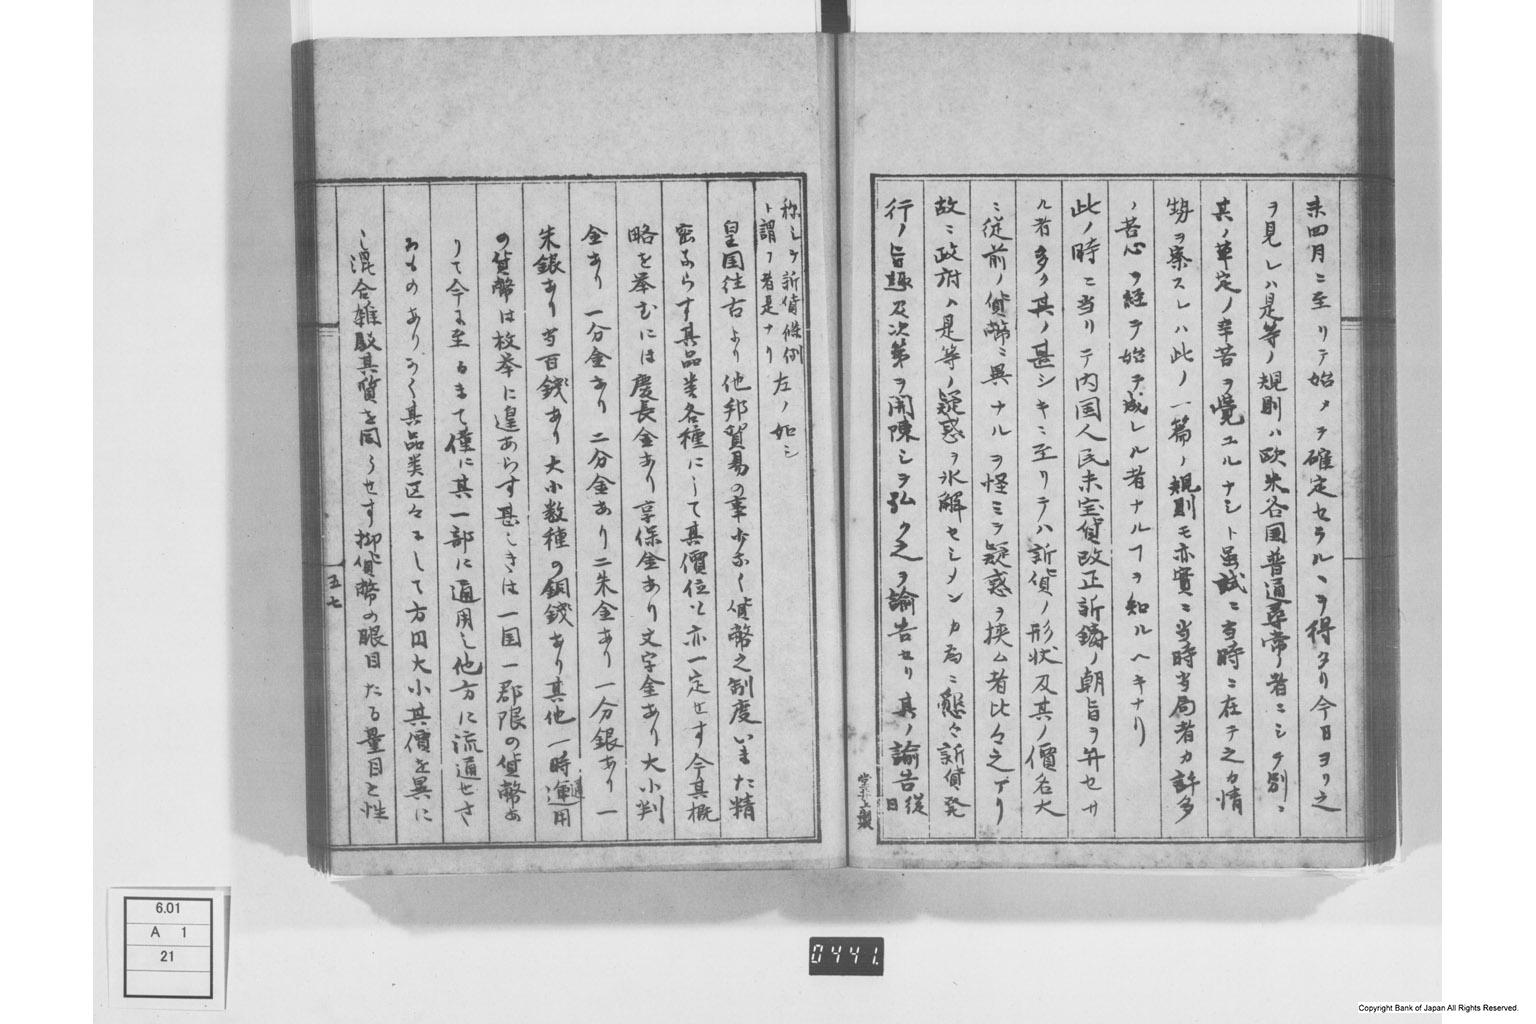 未四月ニ至リテ始メテ確定セラルヽヲ得タリ今日ヨリ之
ヲ見レハ是等ノ規則ハ欧米各国普通尋常ノ者ニシテ別ニ
其ノ革定ノ辛苦ヲ覚ユルナシト虽試ニ当時ニ在テ之カ情
勢ヲ案スレハ此ノ一篇ノ規則モ亦実ニ当時当局者カ許多
ノ苦心ヲ経テ始テ成レル者ナルヿヲ知ルヘキナリ
此ノ時ニ当リテ内国人民未宝貨改正新鋳ノ朝旨ヲ弁セサ
ル者多ク其ノ甚シキニ至リテハ新貨ノ形状及其ノ價名大
ニ従前ノ貨幣ニ異ナルヲ怪ミテ疑惑ヲ挟ム者比々之アリ
故ニ政府ハ是等ノ疑惑ヲ氷解セシメンカ為ニ態々新貨発
行ノ旨趣及次第ヲ開陳シテ弘ク之ヲ諭告セリ其ノ諭告従
日
称シテ新貨條例
ト謂フ者是ナリ
左ノ如シ
皇国往古より他邦貿易の事少なく貨幣之制度いまた精
密ならす其品类各種にして其價位も亦一定せす今其概
略を挙むには慶長金あり享保金あり文字金あり大小判
金あり一分金あり二分金あり二朱金あり一分銀あり一
朱銀あり当百銭あり大小数種の銅銭あり其他一時通運用
の貨幣は枚挙に遑あらす甚しきは一国一郡限の貨幣あ
りて今に至るまて僅に其一部に通用し他方に流通せさ
るものあり如く其品类区々にして方円大小其價を異に
し混合雑駁其質を同うせす抑貨幣の眼目たる量目と性
五七
6.01
A 1
21
0441.
Copyright Bank of Japan All Rights Reserved.